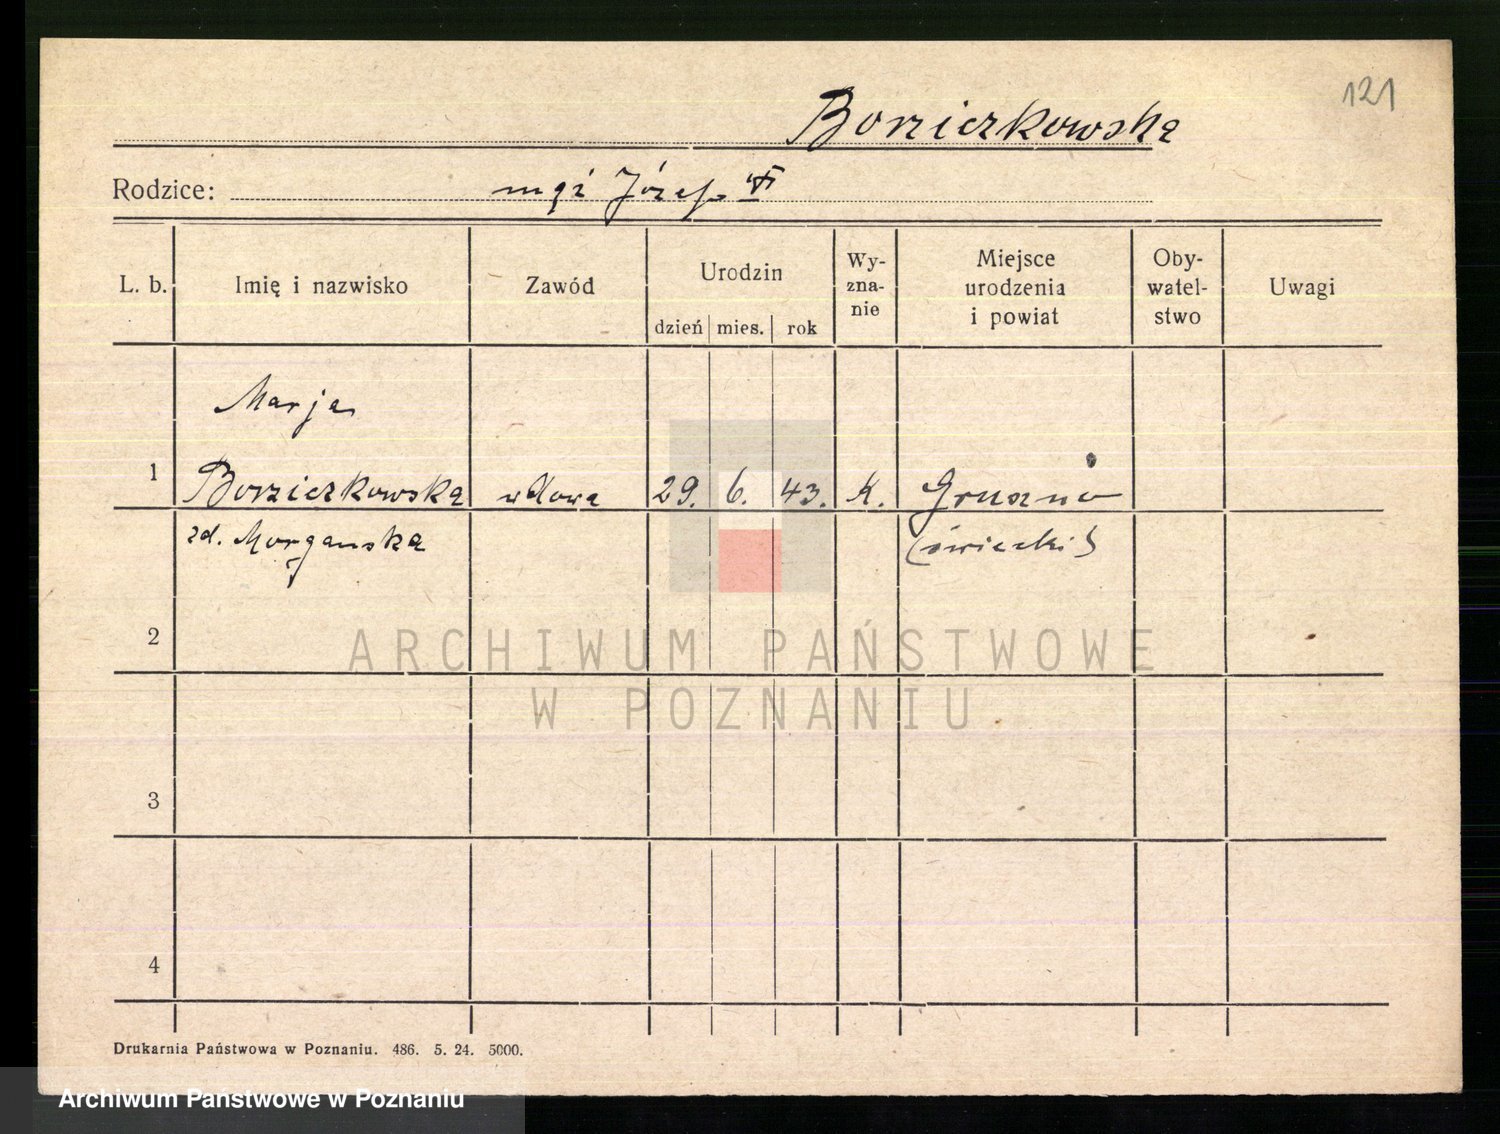 121
Borzierkowska
Rodzice: mąż Józef
L. b. Imię i nazwisko Zawód Urodzin dzień mies. rok Wy-zna-nie Miejsce urodzenia i powiat Oby-watel-stwo Uwagi
Marja
1 Borzierkowska wdowa 29. 6. 43. k. Gruszno
zd. Morganska (świecki)
2
ARCHIWUM PAŃSTWOWE
W POZNANIU
3
4
Drukarnia Państwowa w Poznaniu. 486. 5. 24. 5000.
Archiwum Państwowe w Poznaniu